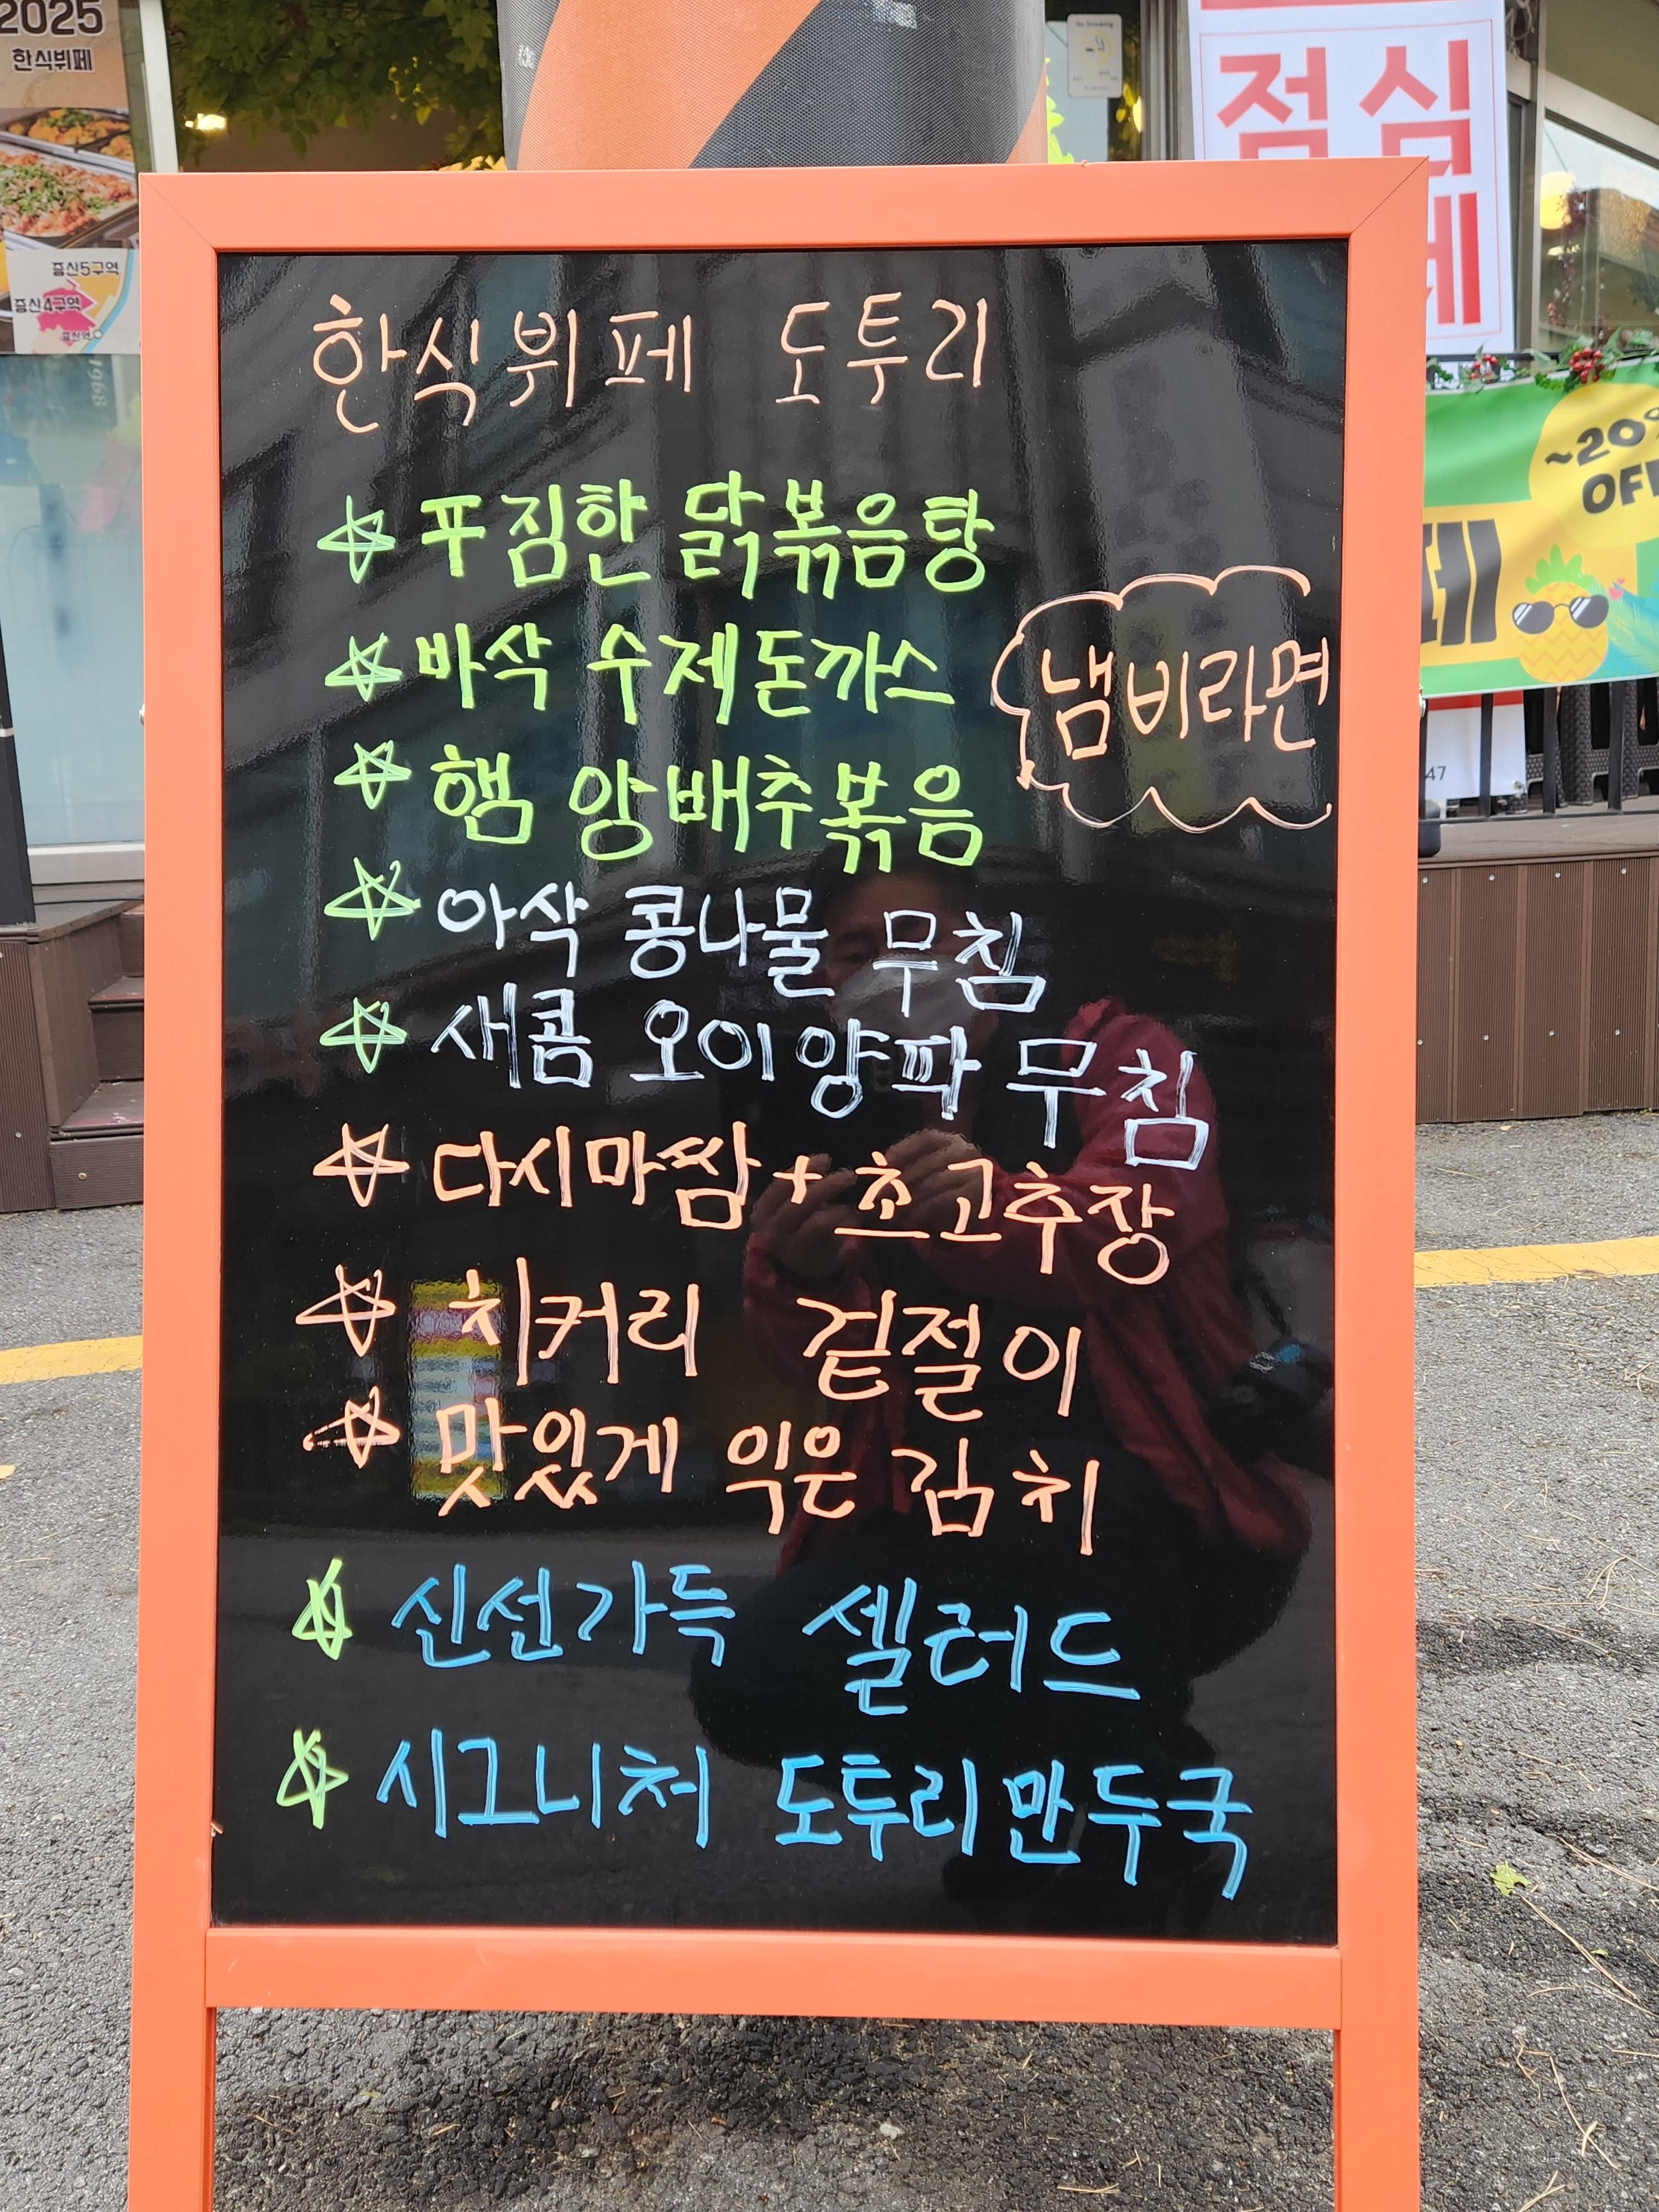 2025
한식뷔페
증산5구역
증산4구역
증산역
No Smoking
점심
~20%
OFF
47
한식뷔페 도투리
☆ 푸짐한 닭볶음탕
☆ 바삭 수제돈까스
냄비라면
☆ 햄 양배추볶음
☆ 아삭 콩나물 무침
☆ 새콤 오이양파 무침
☆ 다시마쌈+초고추장
☆ 치커리 겉절이
☆ 맛있게 익은 김치
☆ 신선가득 셀러드
☆ 시그니처 도투리만두국